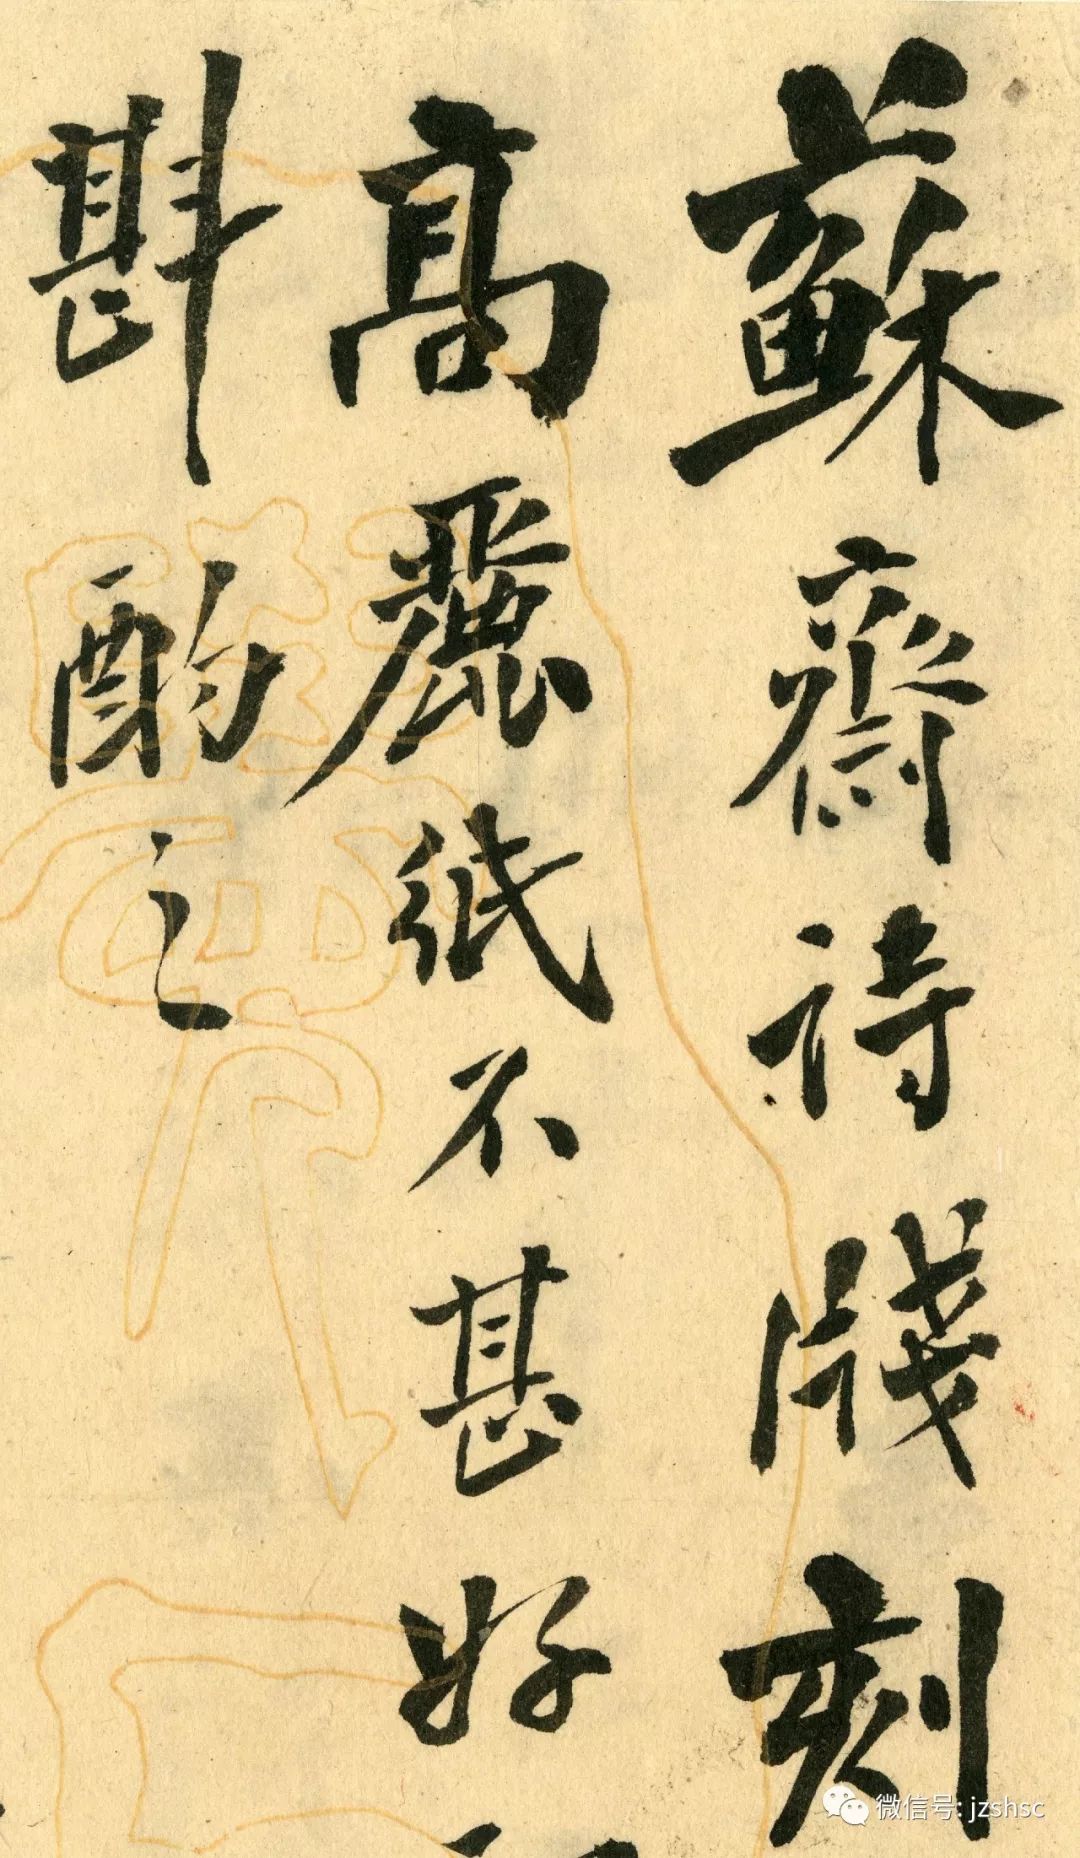 蘇齋詩牋刻
高麗紙不甚好
斟酌之
微信号: jzshsc